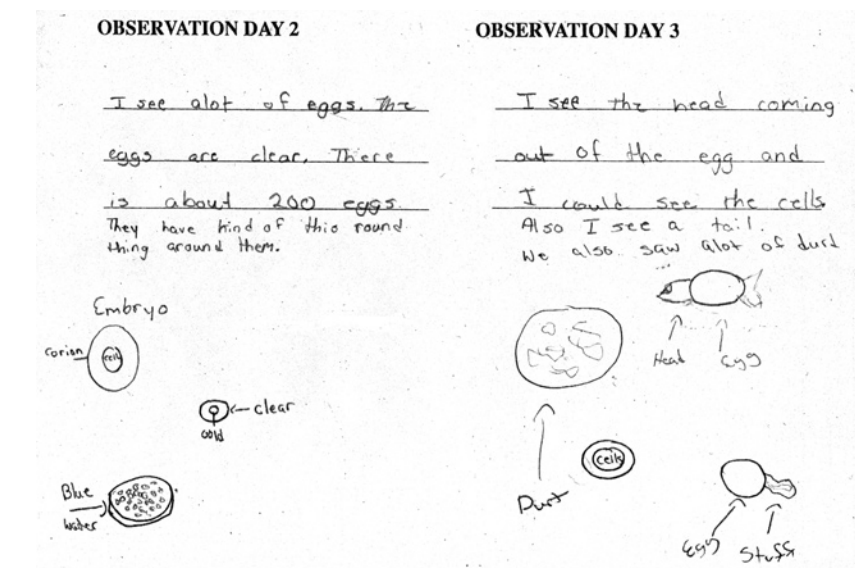 OBSERVATION DAY 2
I see alot of eggs. The
eggs are clear. There
is about 200 eggs.
They have kind of this round
thing around them.
Embryo
corion
cell
clear
Blue
water
OBSERVATION DAY 3
I see the head coming
out of the egg and
I could see the cells.
Also I see a tail.
We also saw alot of dust
Head
Egg
Dust
cells
Egg
Stuff